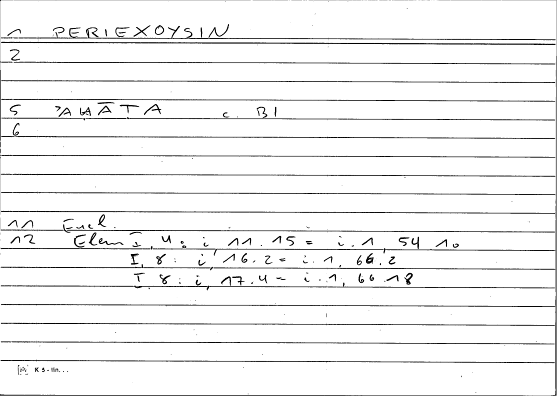 1 PERIEXOYSIN
2
5 ʾAḤĀTA c. BI
6
11 Eucl.
12 Elem I, 4: i, 11.15 = i.1, 54 10
I, 8: i, 16.2 = i.1, 66.2
I, 8: i, 17.4 = i.1, 66 18